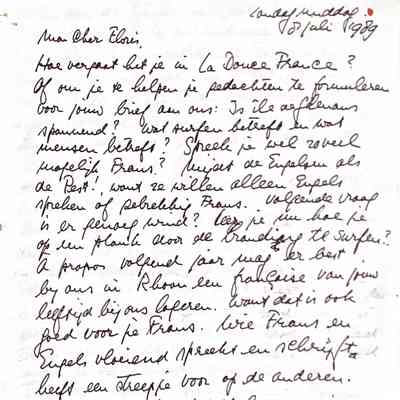 zondag middag
8 juli 1989
Mon Cher Floris,
Hoe vergaat het je in La Douce France?
Of om je te helpen je gedachten te formuleren
voor jouw brief aan ons: Is île d'Oléron
spannend? Wat surfen betreft en wat
mensen betreft? Spreek je wel zoveel
mogelijk Frans? Mijdt de Engelsen als
de Pest!, want ze willen alleen Engels
spreken of gebrekkig Frans. Volgende vraag
is er genoeg wind? Leer je nu hoe je
op een plank door de branding te surfen?
A propos volgend jaar mag er best
bij ons in Rhoon een française van jouw
leeftijd bij ons logeren. Want dat is ook
goed voor je Frans. Wie Frans en
Engels vloeiend spreekt en schrijft
heeft een streepje voor op de anderen.